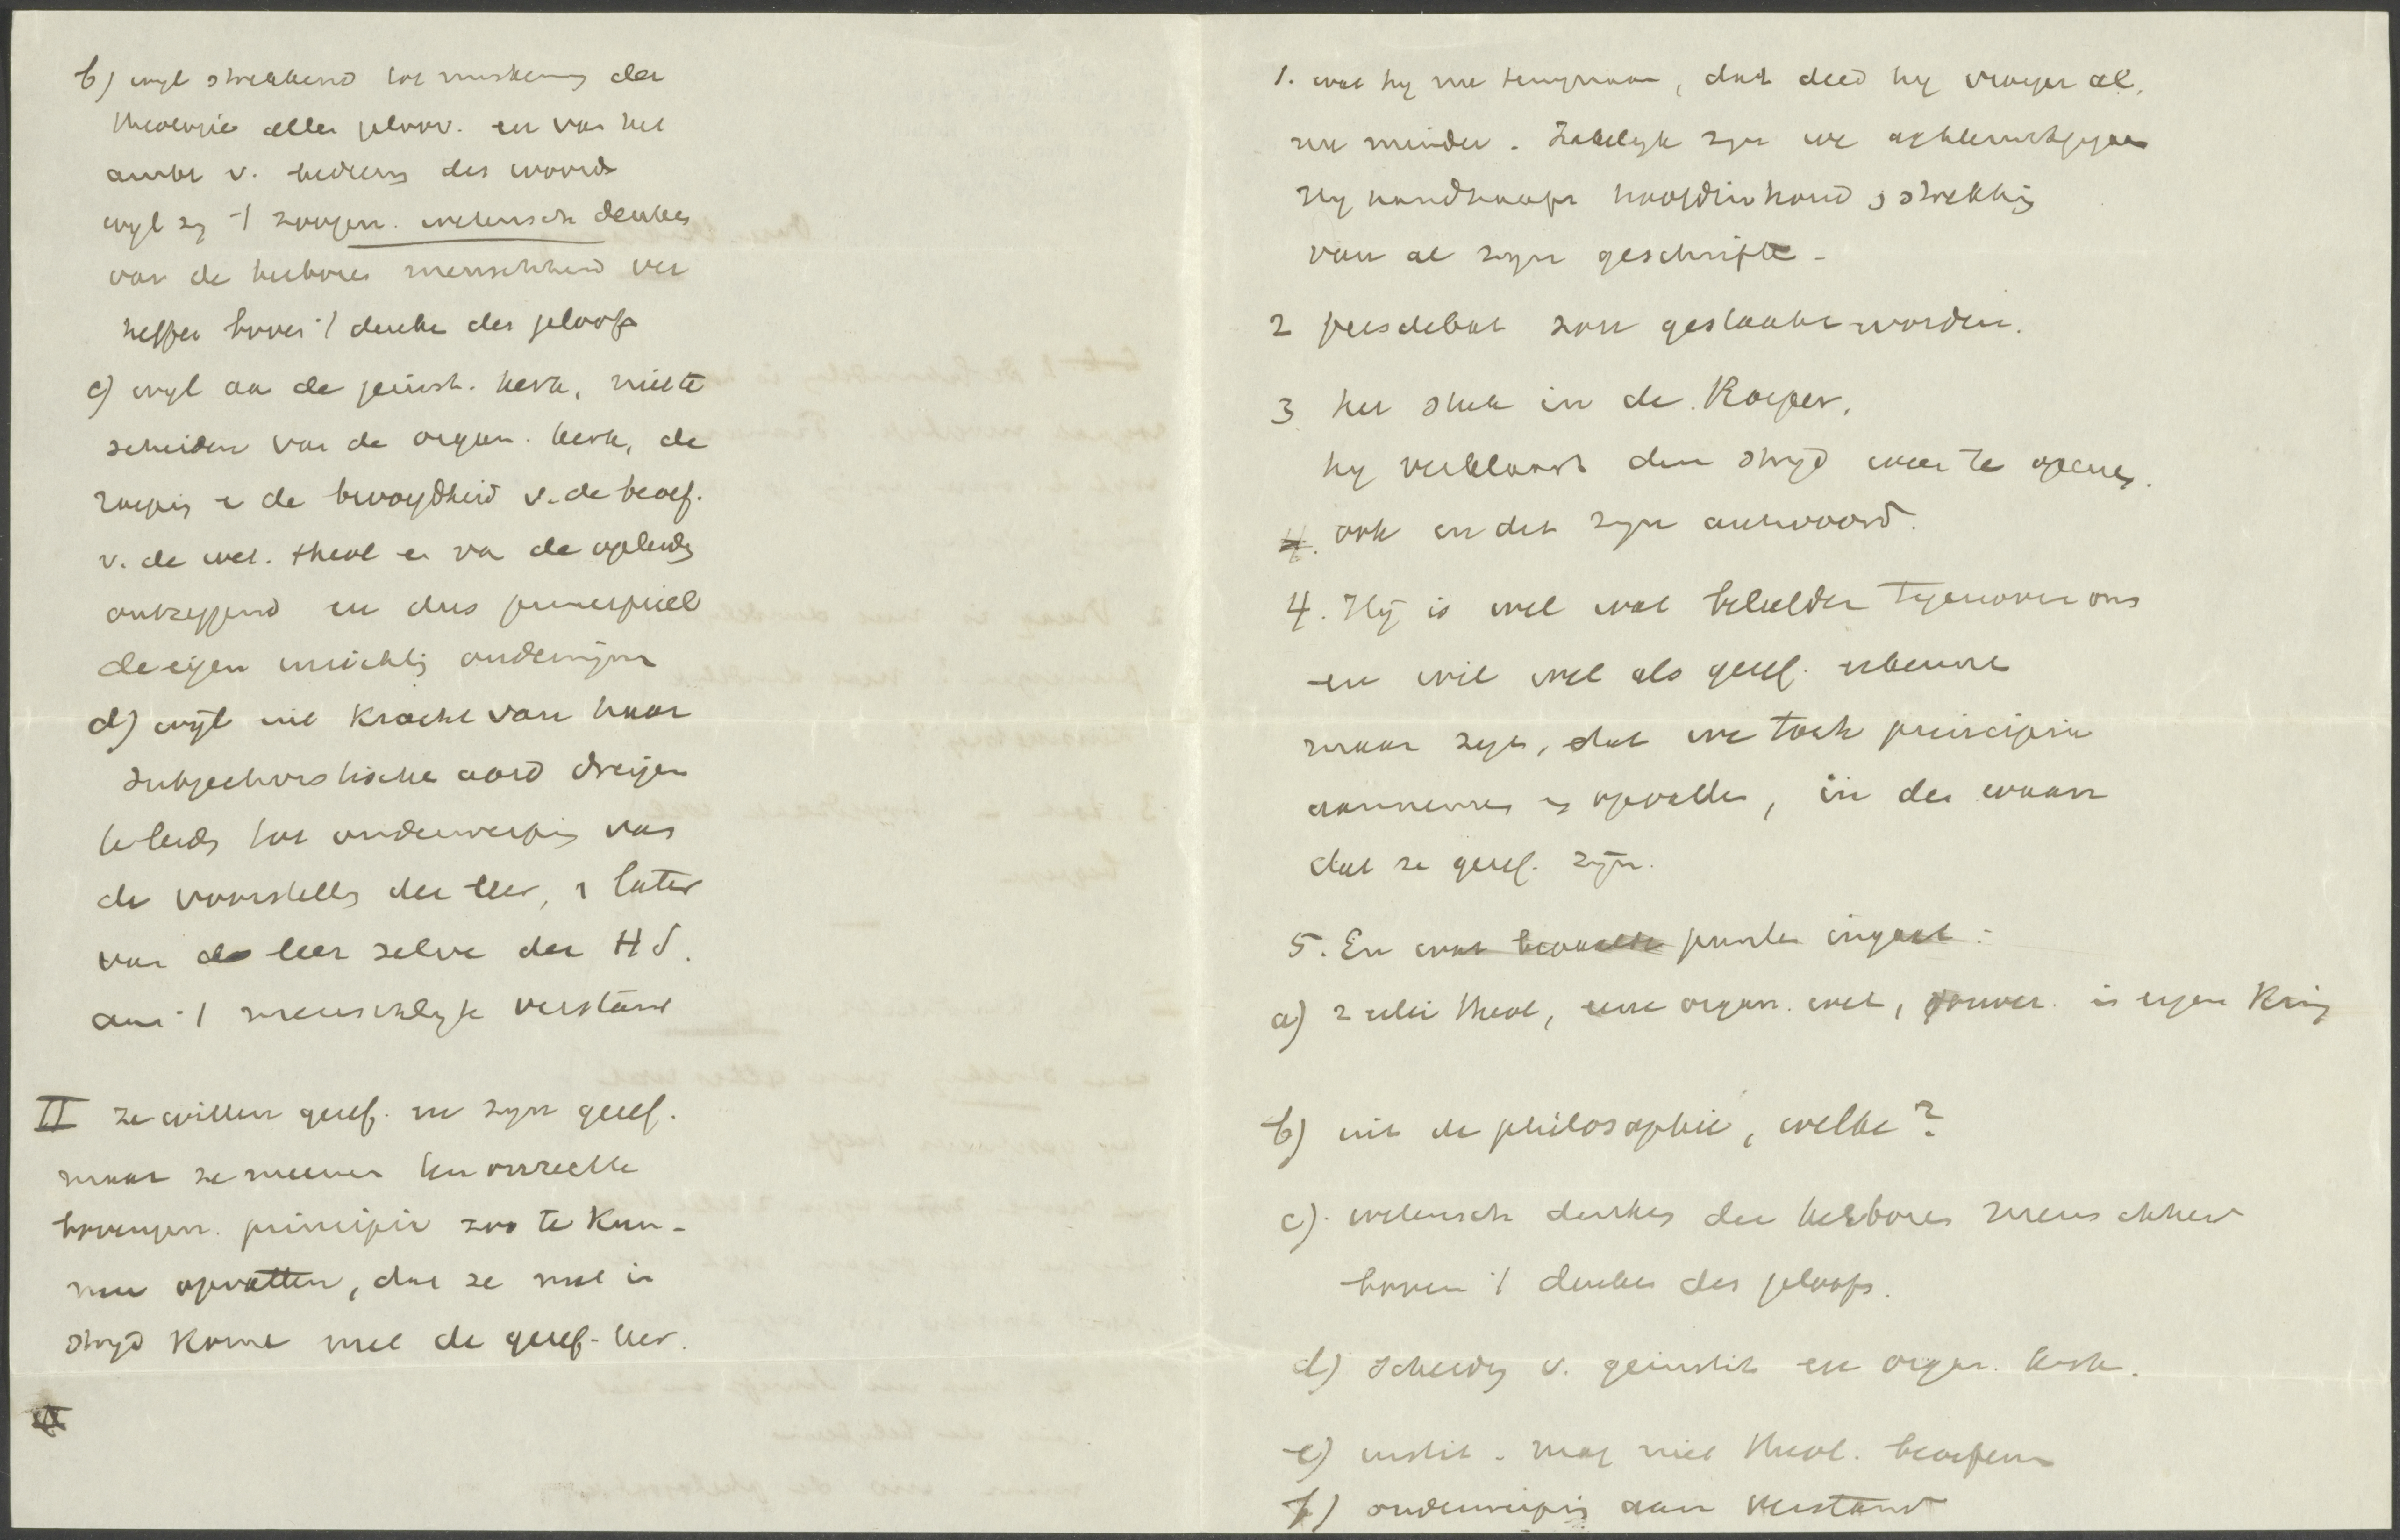 b) wyl strekkend tot miskenning der
theologie aller geloov. en van het
ambt v. bediening des woords
wyl zy 't zoogen. wetensch denken
van de herboren menschheid ver
heffen boven 't denken des geloofs
c) wyl aan de geinst. kerk, niet te
scheiden van de organ. kerk, de
roeping en de bevoegdheid v. de beoef.
v. de wet. theol en van de opleiding
ontzeggend en dus principieel
de eigen inrichting ondermijnen
d) wyl uit kracht van haar
subjectivistische aard dreigen
te leiden tot onderwerping van
de voorstelling der leer, en later
van de leer zelve der HS.
aan 't menschelyke verstand
II ze willen geref. en zyn geref.
maar ze meenen hun onrechte
bovengen. principie zoo te kun-
nen opvatten, dat ze niet in
stryd komen met de geref. leer.
1. wat hy nu terugnam, dat deed hy vroeger al,
nu minder. Zakelyk zyn we achteruitgegaan
Hy handhaaft hoofdinhoud en strekking
van al zyn geschriften.
2 persdebat zou gestaakt worden.
3 het stuk in de Roeper.
hy verklaart den stryd weer te openen.
4. ook in dit zyn antwoord.
4. Hy is wel wat beleefder tegenover ons
en wil wel als geref. erkennen
maar zegt, dat we toch principia
aannemen en opvatten, in den waan
dat ze geref. zijn.
5. En wat bepaalde punten ingaat:
a) 2 erlei theol, eene organ. wet, souver. in eigen kring
b) uit de philosophie, welke?
c). wetensch denken der herboren menschheid
boven 't denken des geloofs.
d) scheiding v. geinstit en organ. kerk.
e) instit. mag niet theol. beoefenen
f) onderwerping aan verstand